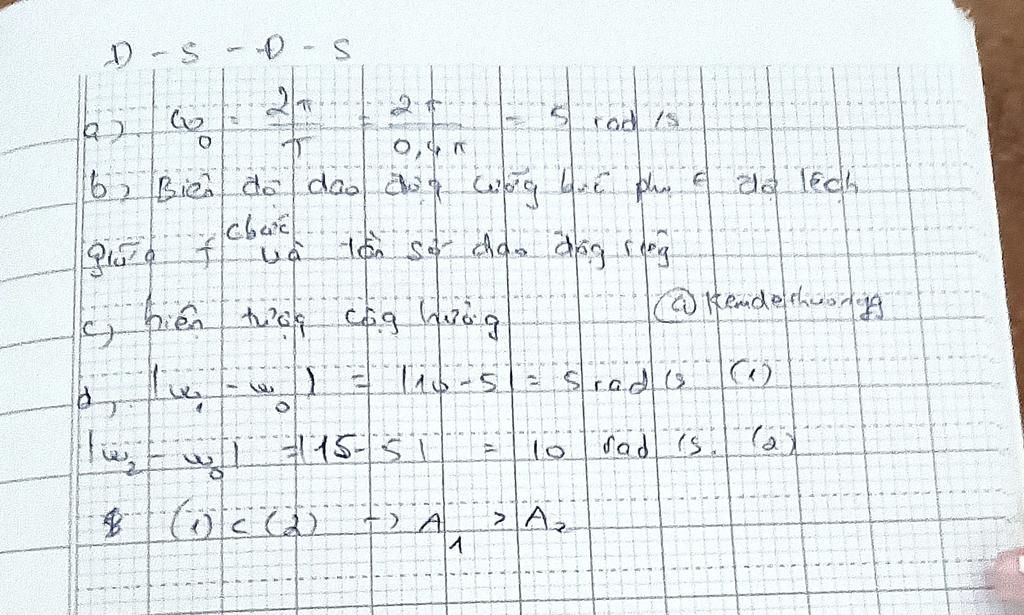 D - S - D - S
a) ω₀ = 2π/T = 2π/0,4π = 5 rad/s
b, Biên độ dao động cưỡng bức phụ ∈ độ lệch
giữa f cbức và tần số dao động riêng
c, hiện tượng cộng hưởng @Kemde
d, |ω₁ - ω₀| = |10-5| = 5 rad/s (1)
|ω₂ - ω₀| = |15-5| = 10 rad/s. (2)
(1) < (2) -> A₁ > A₂